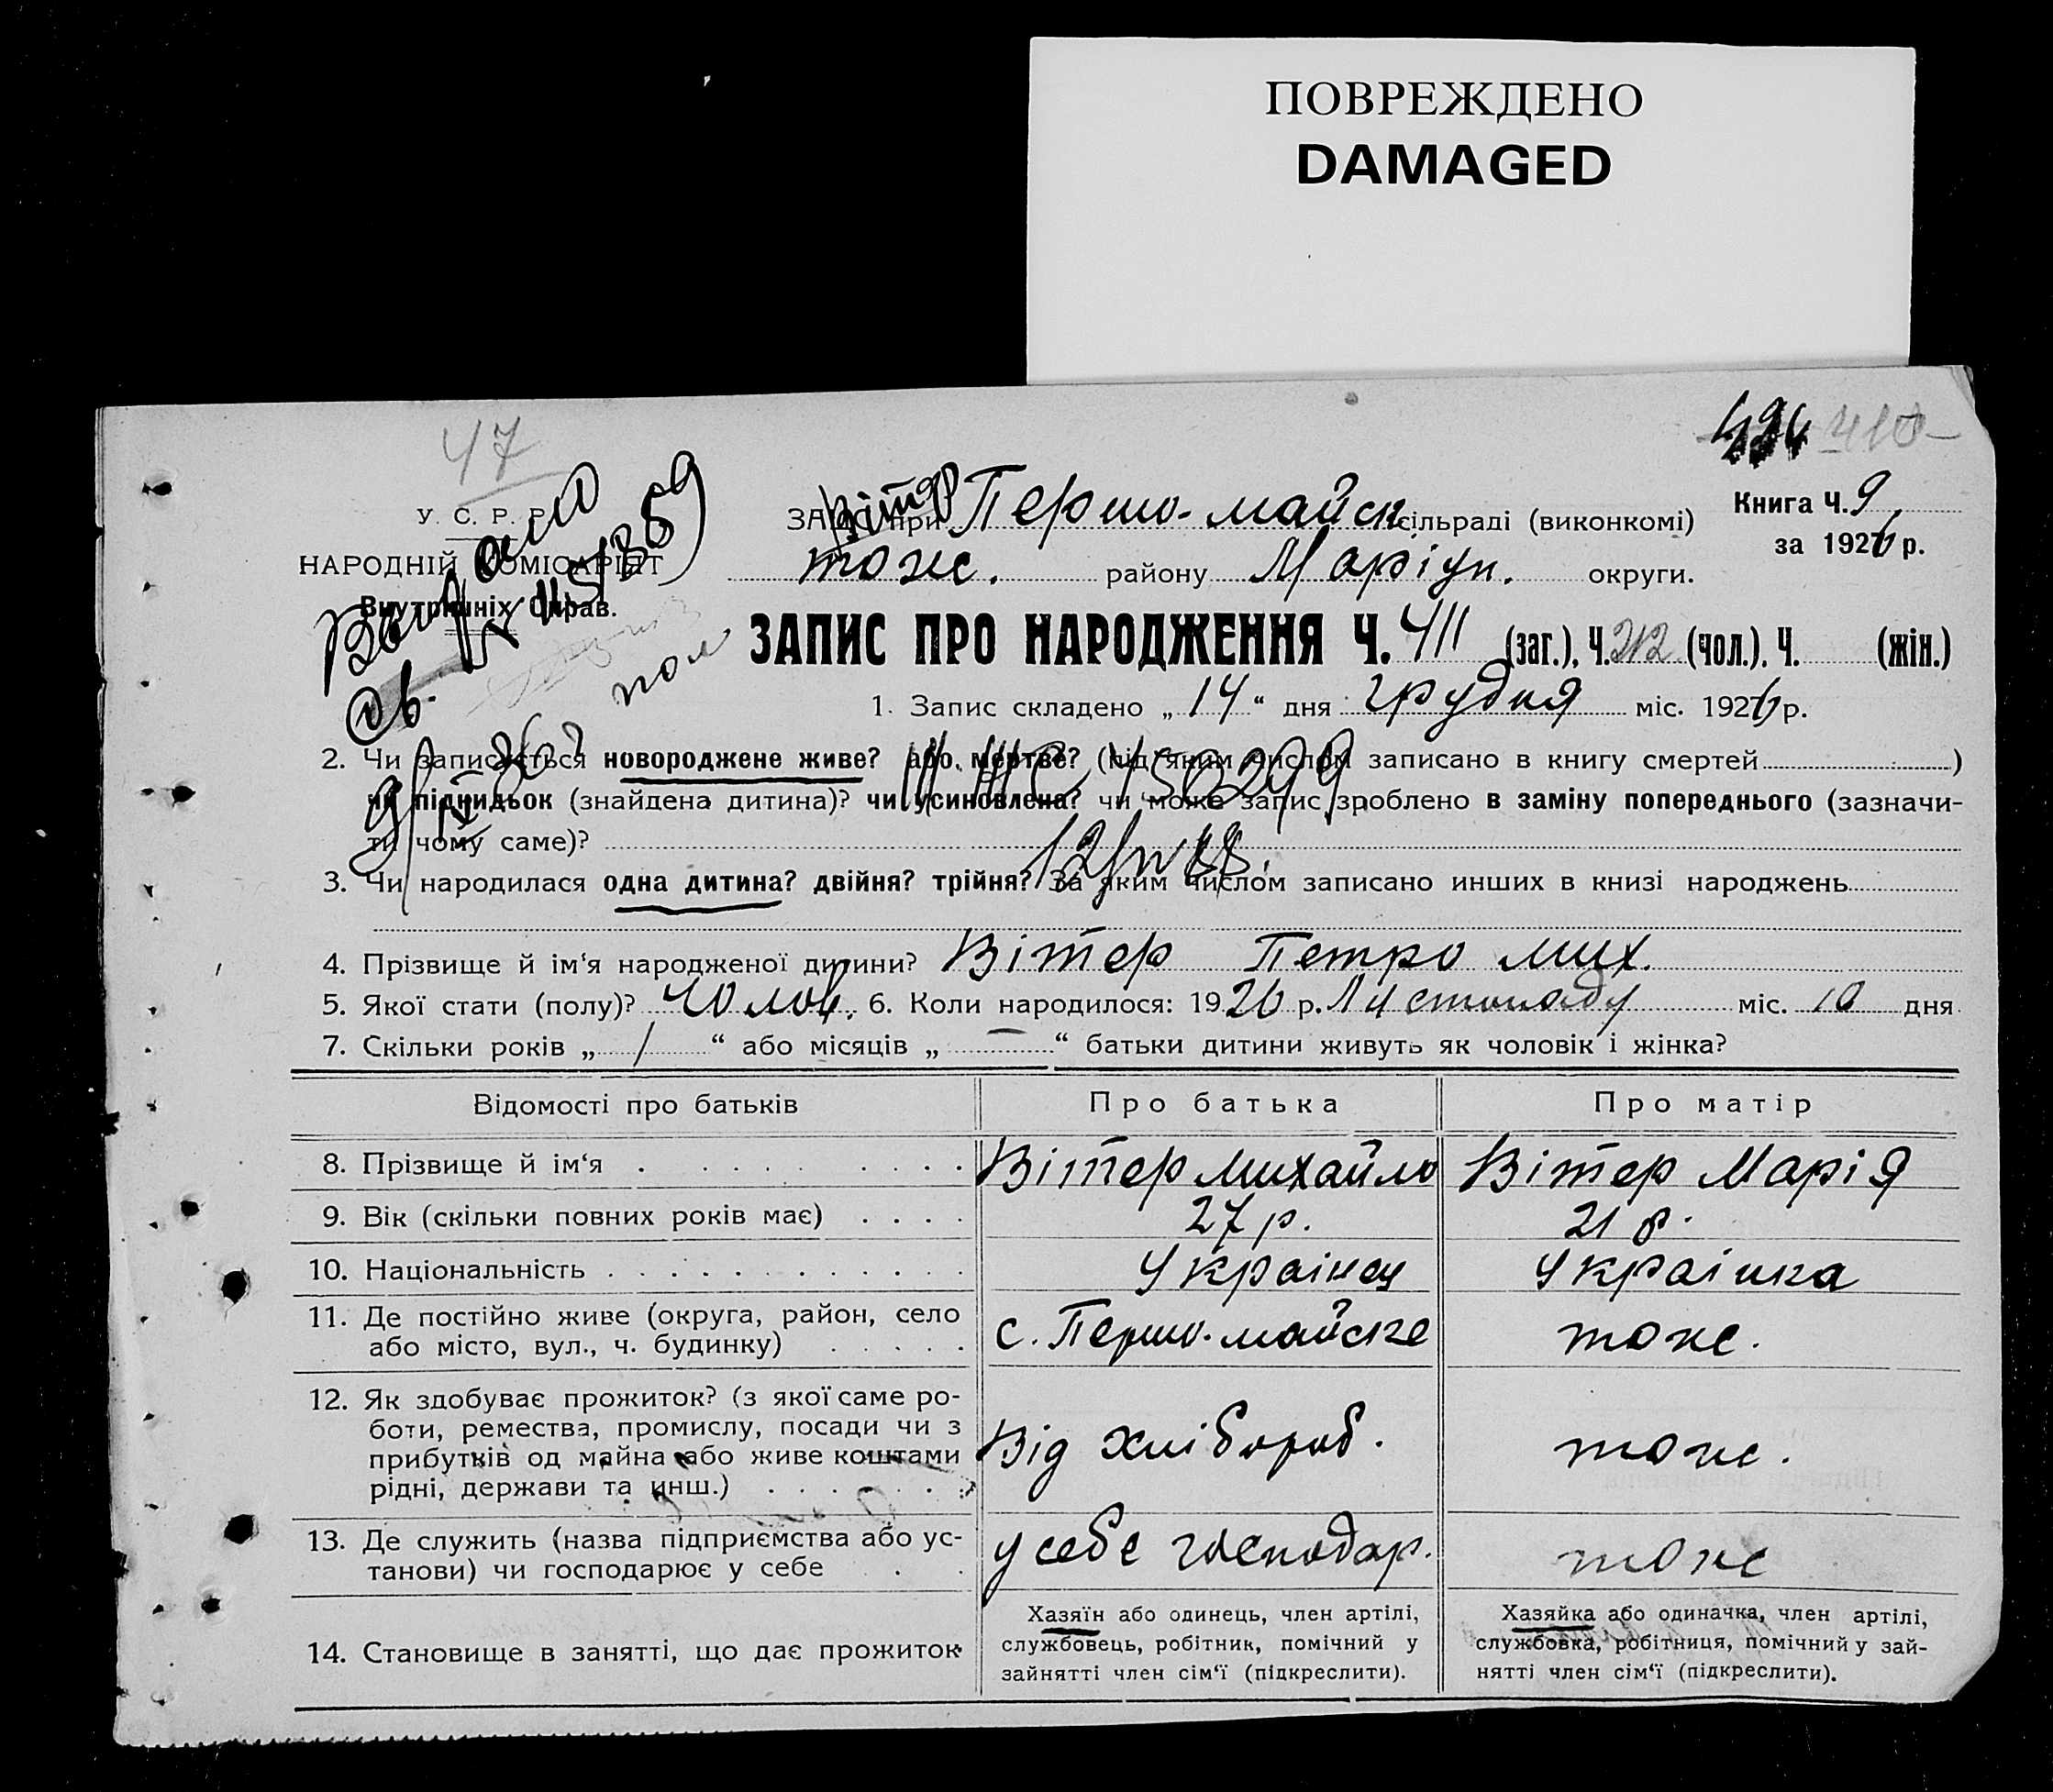 ПОВРЕЖДЕНО
DAMAGED
47
410
У. С. Р. Р.
НАРОДНІЙ КОМІСАРІЯТ
Внутрішніх Справ.
Видано
св.
пол
ЗАГС при Першо-майск сільраді (виконкомі)
Книга Ч. 9
за 1926 р.
тоже. району Маріуп. округи.
ЗАПИС ПРО НАРОДЖЕННЯ Ч. 411 (заг.), Ч. 212 (чол.), Ч. (жін.)
1. Запис складено „14“ дня грудня міс. 1926 р.
2. Чи записується новороджене живе? або мертве? (під яким числом записано в книгу смертей )
чи підкидьок (знайдена дитина)? чи усиновлена? чи може запис зроблено в заміну попереднього (зазначи-
ти чому саме)?
3. Чи народилася одна дитина? двійня? трійня? За яким числом записано инших в книзі народжень
4. Прізвище й ім‘я народженої дитини? Вітер Петро Мих.
5. Якої стати (полу)? чолов. 6. Коли народилося: 1926 р. Листопаду міс. 10 дня
7. Скільки років „1“ або місяців „—“ батьки дитини живуть як чоловік і жінка?
Відомості про батьків Про батька Про матір
8. Прізвище й ім‘я Вітер Михайло Вітер Марія
9. Вік (скільки повних років має) 27 р. 21 р.
10. Національність Українец Українка
11. Де постійно живе (округа, район, село
або місто, вул., ч. будинку) с. Першо-майске тоже.
12. Як здобуває прожиток? (з якої саме ро-
боти, ремества, промислу, посади чи з
прибутків од майна або живе коштами
рідні, держави та инш.) Від хлібороб. тоже.
13. Де служить (назва підприємства або ус-
танови) чи господарює у себе у себе господар. тоже
14. Становище в занятті, що дає прожиток
Хазяїн або одинець, член артілі,
службовець, робітник, помічний у
зайнятті член сім‘ї (підкреслити).
Хазяйка або одиначка, член артілі,
службовка, робітниця, помічний у зай-
нятті член сім‘ї (підкреслити).